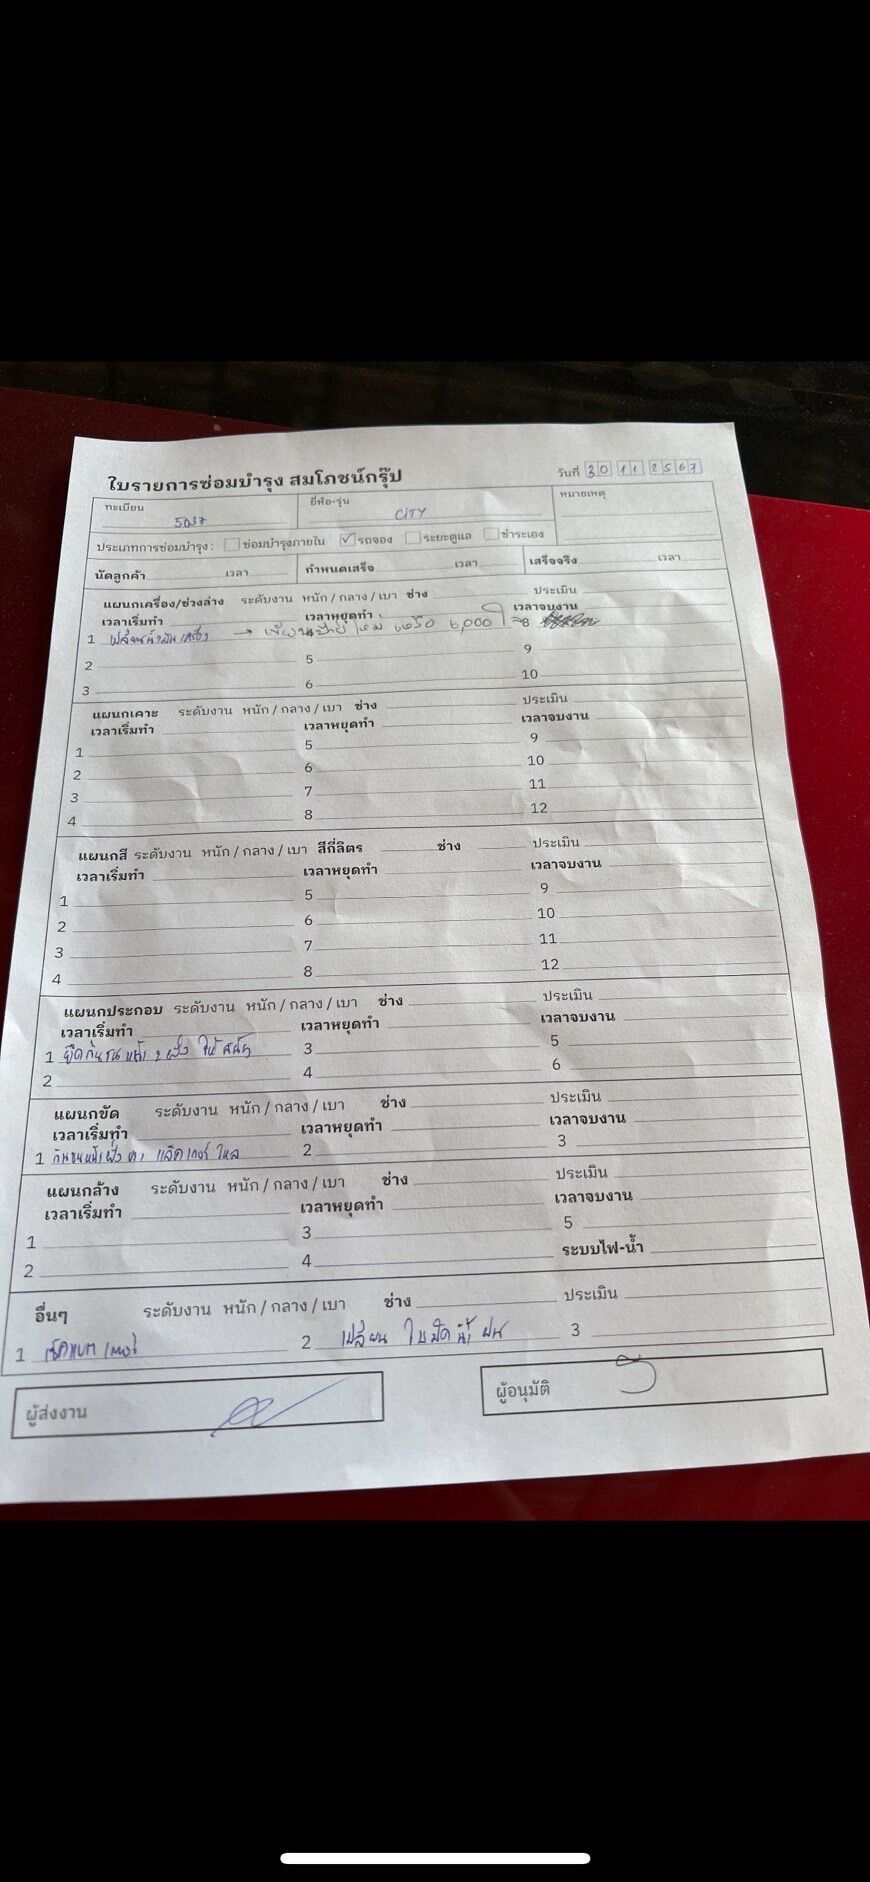 ใบรายการซ่อมบำรุง สมโภชน์กรุ๊ป วันที่ 30 11 2567
ทะเบียน ยี่ห้อ-รุ่น หมายเหตุ
5037 CITY
ประเภทการซ่อมบำรุง : ซ่อมบำรุงภายใน ✓ รถจอง ระยะดูแล ชำระเอง
นัดลูกค้า เวลา กำหนดเสร็จ เวลา เสร็จจริง เวลา
แผนกเครื่อง/ช่วงล่าง ระดับงาน หนัก / กลาง / เบา ช่าง ประเมิน
เวลาเริ่มทำ เวลาหยุดทำ เวลาจบงาน
1 เปลี่ยนน้ำมันเครื่อง → ใหม่ 6,000 8
2 5 9
3 6 10
แผนกเคาะ ระดับงาน หนัก / กลาง / เบา ช่าง ประเมิน
เวลาเริ่มทำ เวลาหยุดทำ เวลาจบงาน
1 5 9
2 6 10
3 7 11
4 8 12
แผนกสี ระดับงาน หนัก / กลาง / เบา สีกี่ลิตร ช่าง ประเมิน
เวลาเริ่มทำ เวลาหยุดทำ เวลาจบงาน
1 5 9
2 6 10
3 7 11
4 8 12
แผนกประกอบ ระดับงาน หนัก / กลาง / เบา ช่าง ประเมิน
เวลาเริ่มทำ เวลาหยุดทำ เวลาจบงาน
1 ยึดกันชนหน้า 2 ฝั่ง ให้สนิท 3 5
2 4 6
แผนกขัด ระดับงาน หนัก / กลาง / เบา ช่าง ประเมิน
เวลาเริ่มทำ เวลาหยุดทำ เวลาจบงาน
1 กันชนหน้าฝั่ง แลคเกอร์ ไหล 2 3
แผนกล้าง ระดับงาน หนัก / กลาง / เบา ช่าง ประเมิน
เวลาเริ่มทำ เวลาหยุดทำ เวลาจบงาน
1 3 5
2 4 ระบบไฟ-น้ำ
อื่นๆ ระดับงาน หนัก / กลาง / เบา ช่าง ประเมิน
1 เช็คแบตเตอรี่ 2 เปลี่ยน ใบปัดน้ำฝน 3
ผู้ส่งงาน ผู้อนุมัติ